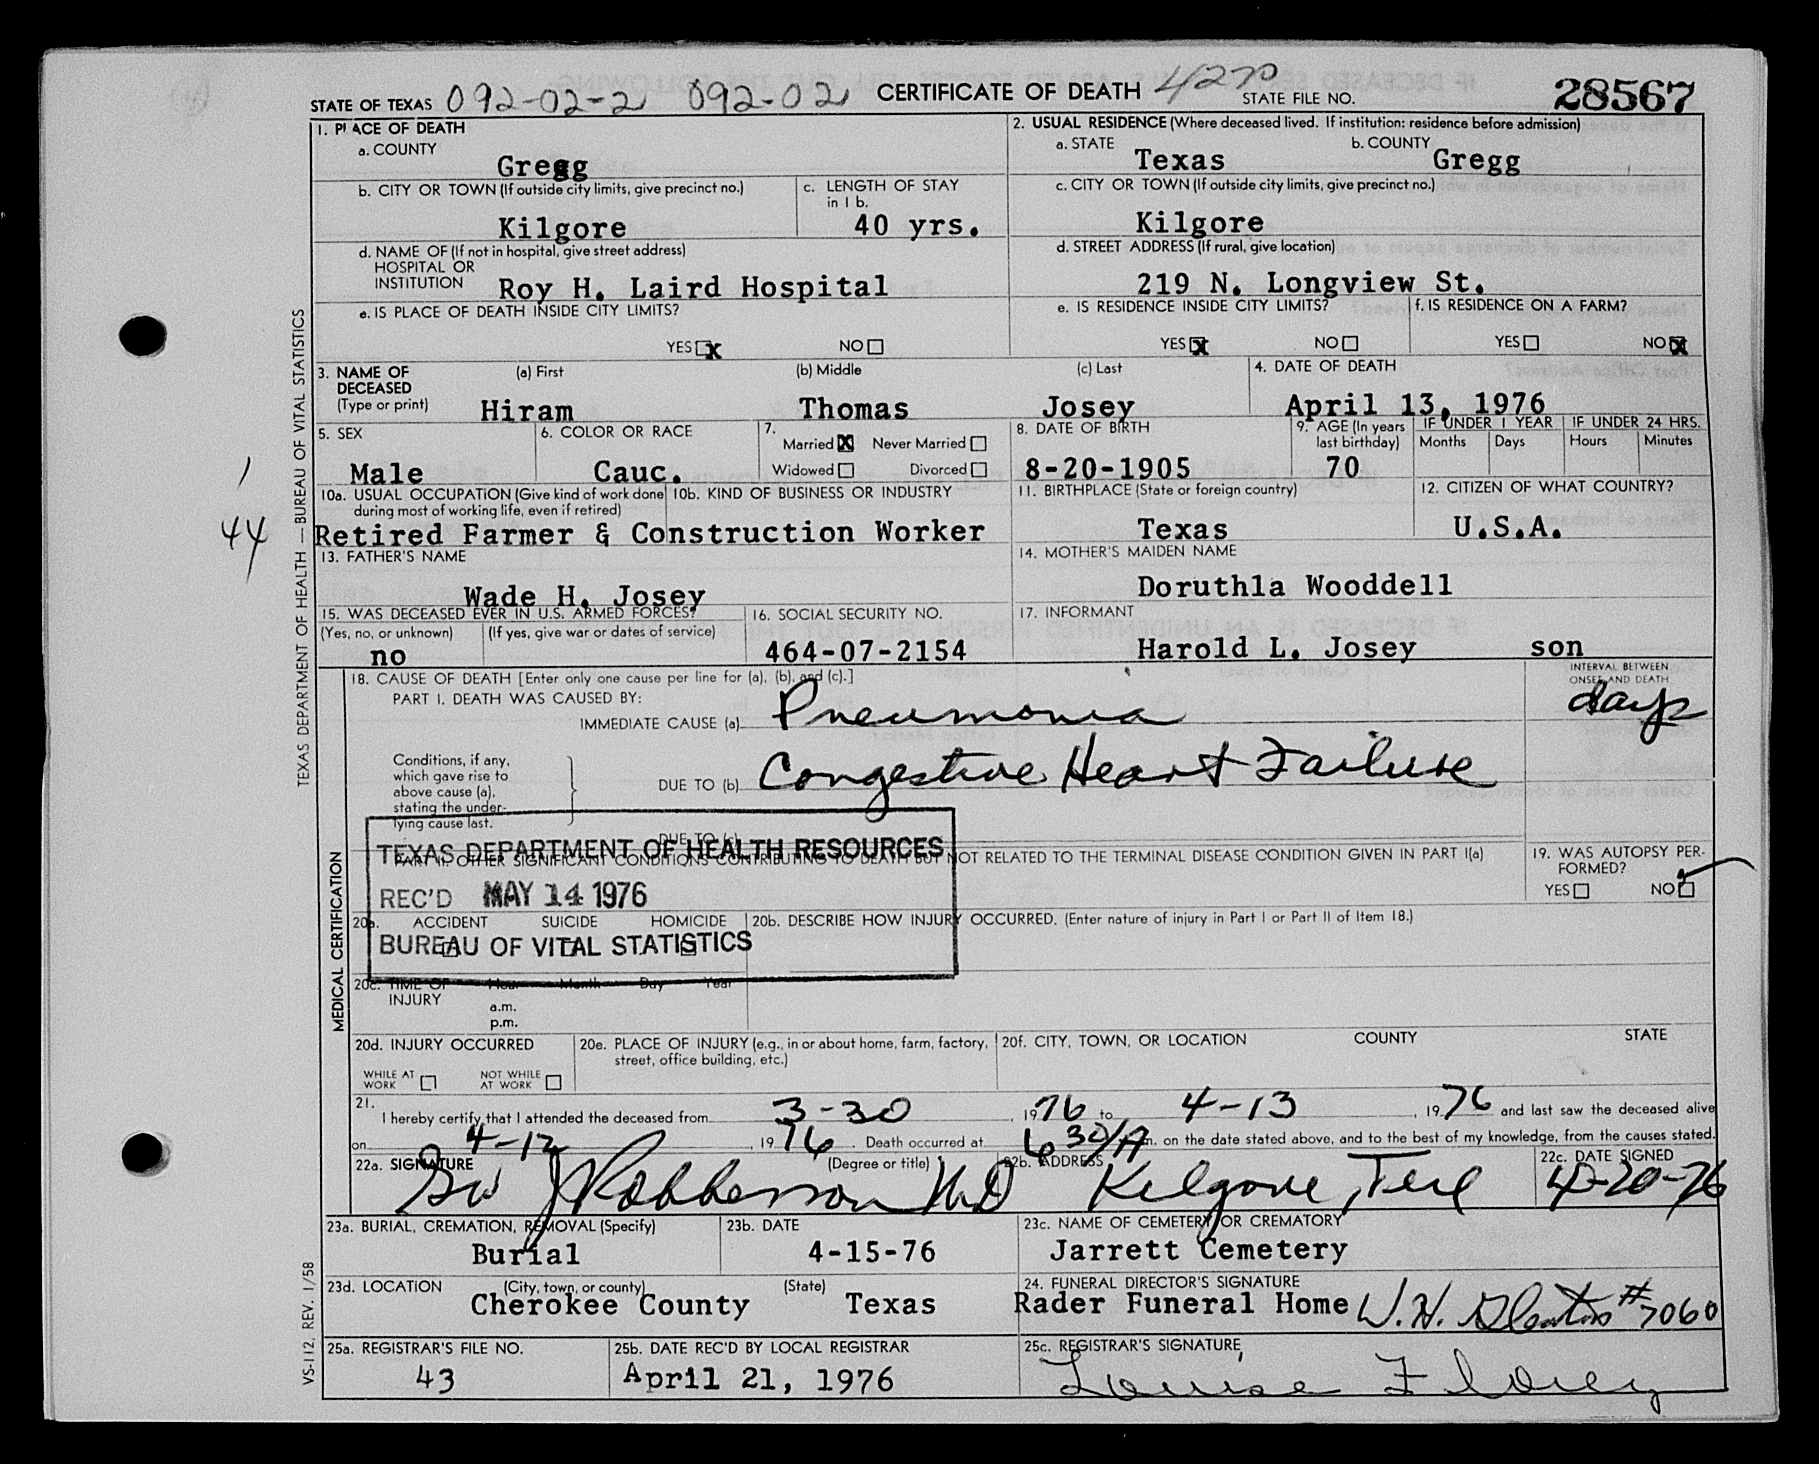 STATE OF TEXAS 092-02-2 092-02 CERTIFICATE OF DEATH STATE FILE NO. 28567
1. PLACE OF DEATH
a. COUNTY
Gregg
2. USUAL RESIDENCE (Where deceased lived. If institution: residence before admission)
a. STATE b. COUNTY
Texas Gregg
b. CITY OR TOWN (If outside city limits, give precinct no.)
Kilgore
c. LENGTH OF STAY
in 1 b.
40 yrs.
c. CITY OR TOWN (If outside city limits, give precinct no.)
Kilgore
d. NAME OF (If not in hospital, give street address)
HOSPITAL OR
INSTITUTION Roy H. Laird Hospital
d. STREET ADDRESS (If rural, give location)
219 N. Longview St.
e. IS PLACE OF DEATH INSIDE CITY LIMITS?
YES X NO
e. IS RESIDENCE INSIDE CITY LIMITS?
YES X NO
f. IS RESIDENCE ON A FARM?
YES NO X
3. NAME OF
DECEASED
(Type or print)
(a) First (b) Middle (c) Last
Hiram Thomas Josey
4. DATE OF DEATH
April 13, 1976
5. SEX
Male
6. COLOR OR RACE
Cauc.
7.
Married X Never Married
Widowed Divorced
8. DATE OF BIRTH
8-20-1905
9. AGE (In years
last birthday)
70
IF UNDER 1 YEAR
Months Days
IF UNDER 24 HRS.
Hours Minutes
10a. USUAL OCCUPATION (Give kind of work done
during most of working life, even if retired)
10b. KIND OF BUSINESS OR INDUSTRY
Retired Farmer & Construction Worker
11. BIRTHPLACE (State or foreign country)
Texas
12. CITIZEN OF WHAT COUNTRY?
U.S.A.
13. FATHER'S NAME
Wade H. Josey
14. MOTHER'S MAIDEN NAME
Doruthia Wooddell
15. WAS DECEASED EVER IN U.S. ARMED FORCES?
(Yes, no, or unknown) (If yes, give war or dates of service)
no
16. SOCIAL SECURITY NO.
464-07-2154
17. INFORMANT
Harold L. Josey son
18. CAUSE OF DEATH [Enter only one cause per line for (a), (b), and (c).]
PART I. DEATH WAS CAUSED BY:
IMMEDIATE CAUSE (a) Pneumonia
INTERVAL BETWEEN
ONSET AND DEATH
days
Conditions, if any,
which gave rise to
above cause (a),
stating the under-
lying cause last.
DUE TO (b) Congestive Heart Failure
DUE TO (c)
PART II. OTHER SIGNIFICANT CONDITIONS CONTRIBUTING TO DEATH BUT NOT RELATED TO THE TERMINAL DISEASE CONDITION GIVEN IN PART I(a)
19. WAS AUTOPSY PER-
FORMED?
YES NO
TEXAS DEPARTMENT OF HEALTH RESOURCES
REC'D MAY 14 1976
BUREAU OF VITAL STATISTICS
20a. ACCIDENT SUICIDE HOMICIDE
20b. DESCRIBE HOW INJURY OCCURRED. (Enter nature of injury in Part I or Part II of Item 18.)
20c. TIME OF Hour Month Day Year
INJURY
a.m.
p.m.
20d. INJURY OCCURRED
WHILE AT
WORK
NOT WHILE
AT WORK
20e. PLACE OF INJURY (e.g., in or about home, farm, factory,
street, office building, etc.)
20f. CITY, TOWN, OR LOCATION COUNTY STATE
21.
I hereby certify that I attended the deceased from 3-30, 1976 to 4-13, 1976 and last saw the deceased alive
on 4-12, 1976. Death occurred at 6 30/A m. on the date stated above, and to the best of my knowledge, from the causes stated.
22a. SIGNATURE (Degree or title)
Robberson MD
22b. ADDRESS
Kilgore, Tex
22c. DATE SIGNED
4-20-76
23a. BURIAL, CREMATION, REMOVAL (Specify)
Burial
23b. DATE
4-15-76
23c. NAME OF CEMETERY OR CREMATORY
Jarrett Cemetery
23d. LOCATION (City, town, or county) (State)
Cherokee County Texas
24. FUNERAL DIRECTOR'S SIGNATURE
Rader Funeral Home W. H. #7060
25a. REGISTRAR'S FILE NO.
43
25b. DATE REC'D BY LOCAL REGISTRAR
April 21, 1976
25c. REGISTRAR'S SIGNATURE
Louise
TEXAS DEPARTMENT OF HEALTH — BUREAU OF VITAL STATISTICS
MEDICAL CERTIFICATION
VS-112, REV. 1/58
1
44